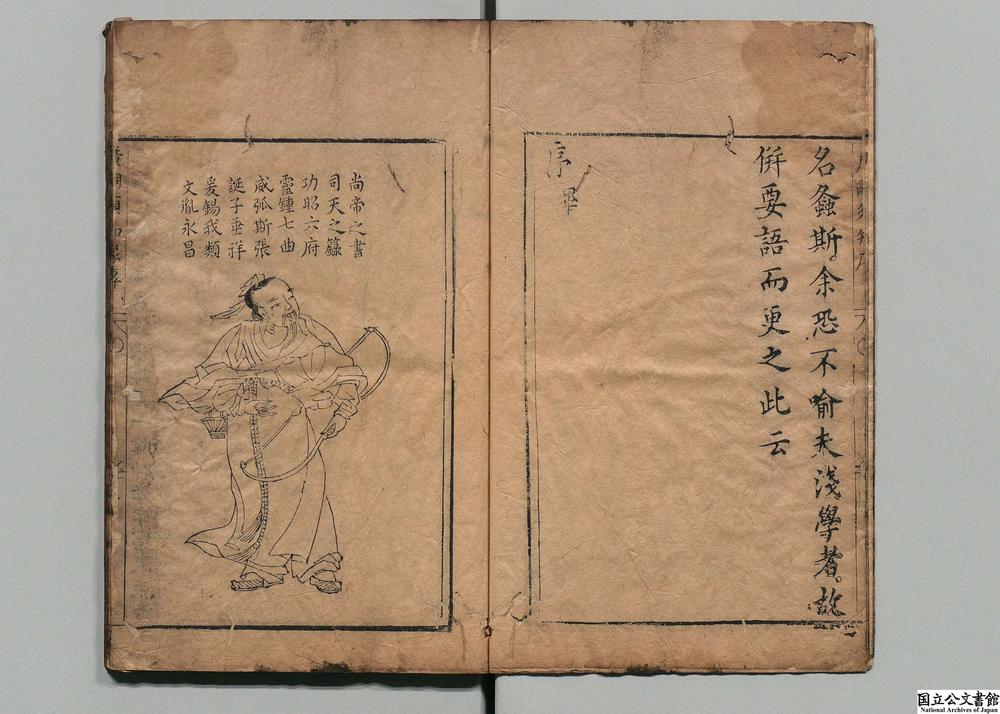 名螽斯余恐不喻夫淺學者。故
併要語而更之此云
序畢
尚帝之書
司天之籙
功昭六府
靈鍾七曲
威弧斯張
誕子垂祥
爰錫我類
文胤永昌
国立公文書館
National Archives of Japan